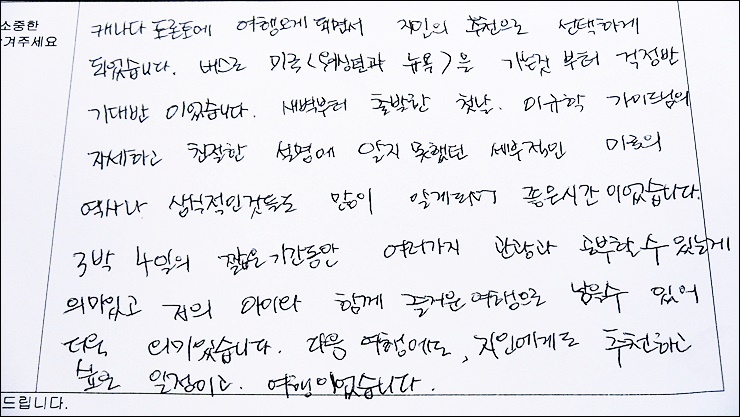 소중한
겨주세요
캐나다 토론토에 여행오게 되면서 지인의 추천으로 선택하게
되었습니다. 버스로 미국(워싱턴과 뉴욕)을 가는것 부터 걱정반
기대반 이었습니다. 새벽부터 출발한 첫날. 이규학 가이드님의
자세하고 친절한 설명에 알지 못했던 세부적인 미국의
역사나 상식적인것들도 많이 알게되어 좋은시간 이었습니다.
3박 4일의 짧은 기간동안 여러가지 관광과 공부할 수 있는게
의미있고 저의 아이와 함께 즐거운 여행으로 남을수 있어
더욱 의미있었습니다. 다음 여행에도, 지인에게도 추천하고
싶은 일정이고. 여행이었습니다.
드립니다.